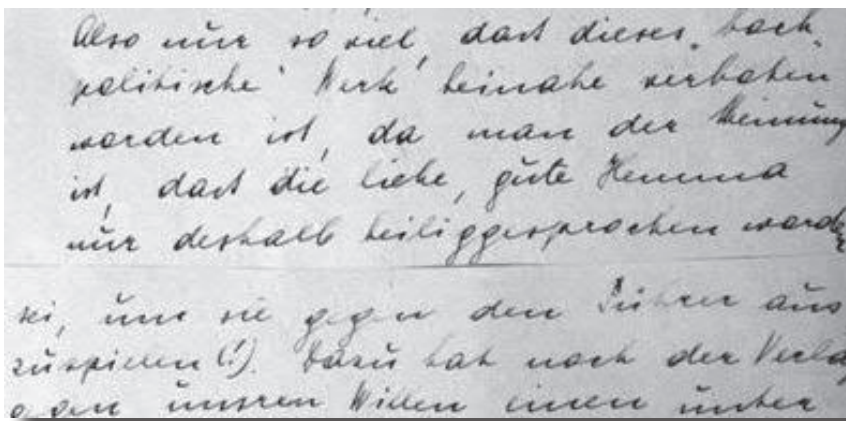 Also nur so viel, daß dieses „hoch-
politische" Werk beinahe verboten
worden ist, da man der Meinung
ist, daß die liebe, gute Hemma
nur deshalb heiliggesprochen worden
sei, um sie gegen den Führer aus
zuspielen (!). Dazu hat noch der Verlag
gegen unsren Willen einen unter